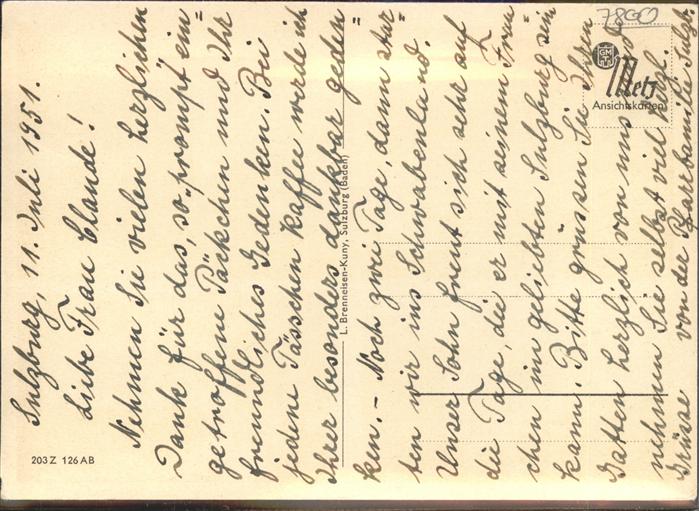 Sulzburg, 11. Juli 1951.
Liebe Frau Claude!
Nehmen Sie vielen herzlichen
Dank für das, so „prompt" ein=
getroffene Päckchen und Ihr
freundliches Gedenken. Bei
jedem Tässchen Kaffee werde ich
Ihrer besonders dankbar geden=
ken. – Noch zwei Tage, dann star=
ten wir ins Schwabenland.
Unser Sohn freut sich sehr auf
die Tage, die er mit seinem Freu=
chen im geliebten Sulzburg sein
kann. Bitte grüssen Sie Ihren
Gatten herzlich von uns
nehmen Sie selbst viel herzl.
Grüsse von der Pfarrfamilie
7800
GM
Metz
Ansichtskarten
L. Brenneisen-Kuny, Sulzburg (Baden)
203 Z 126 AB